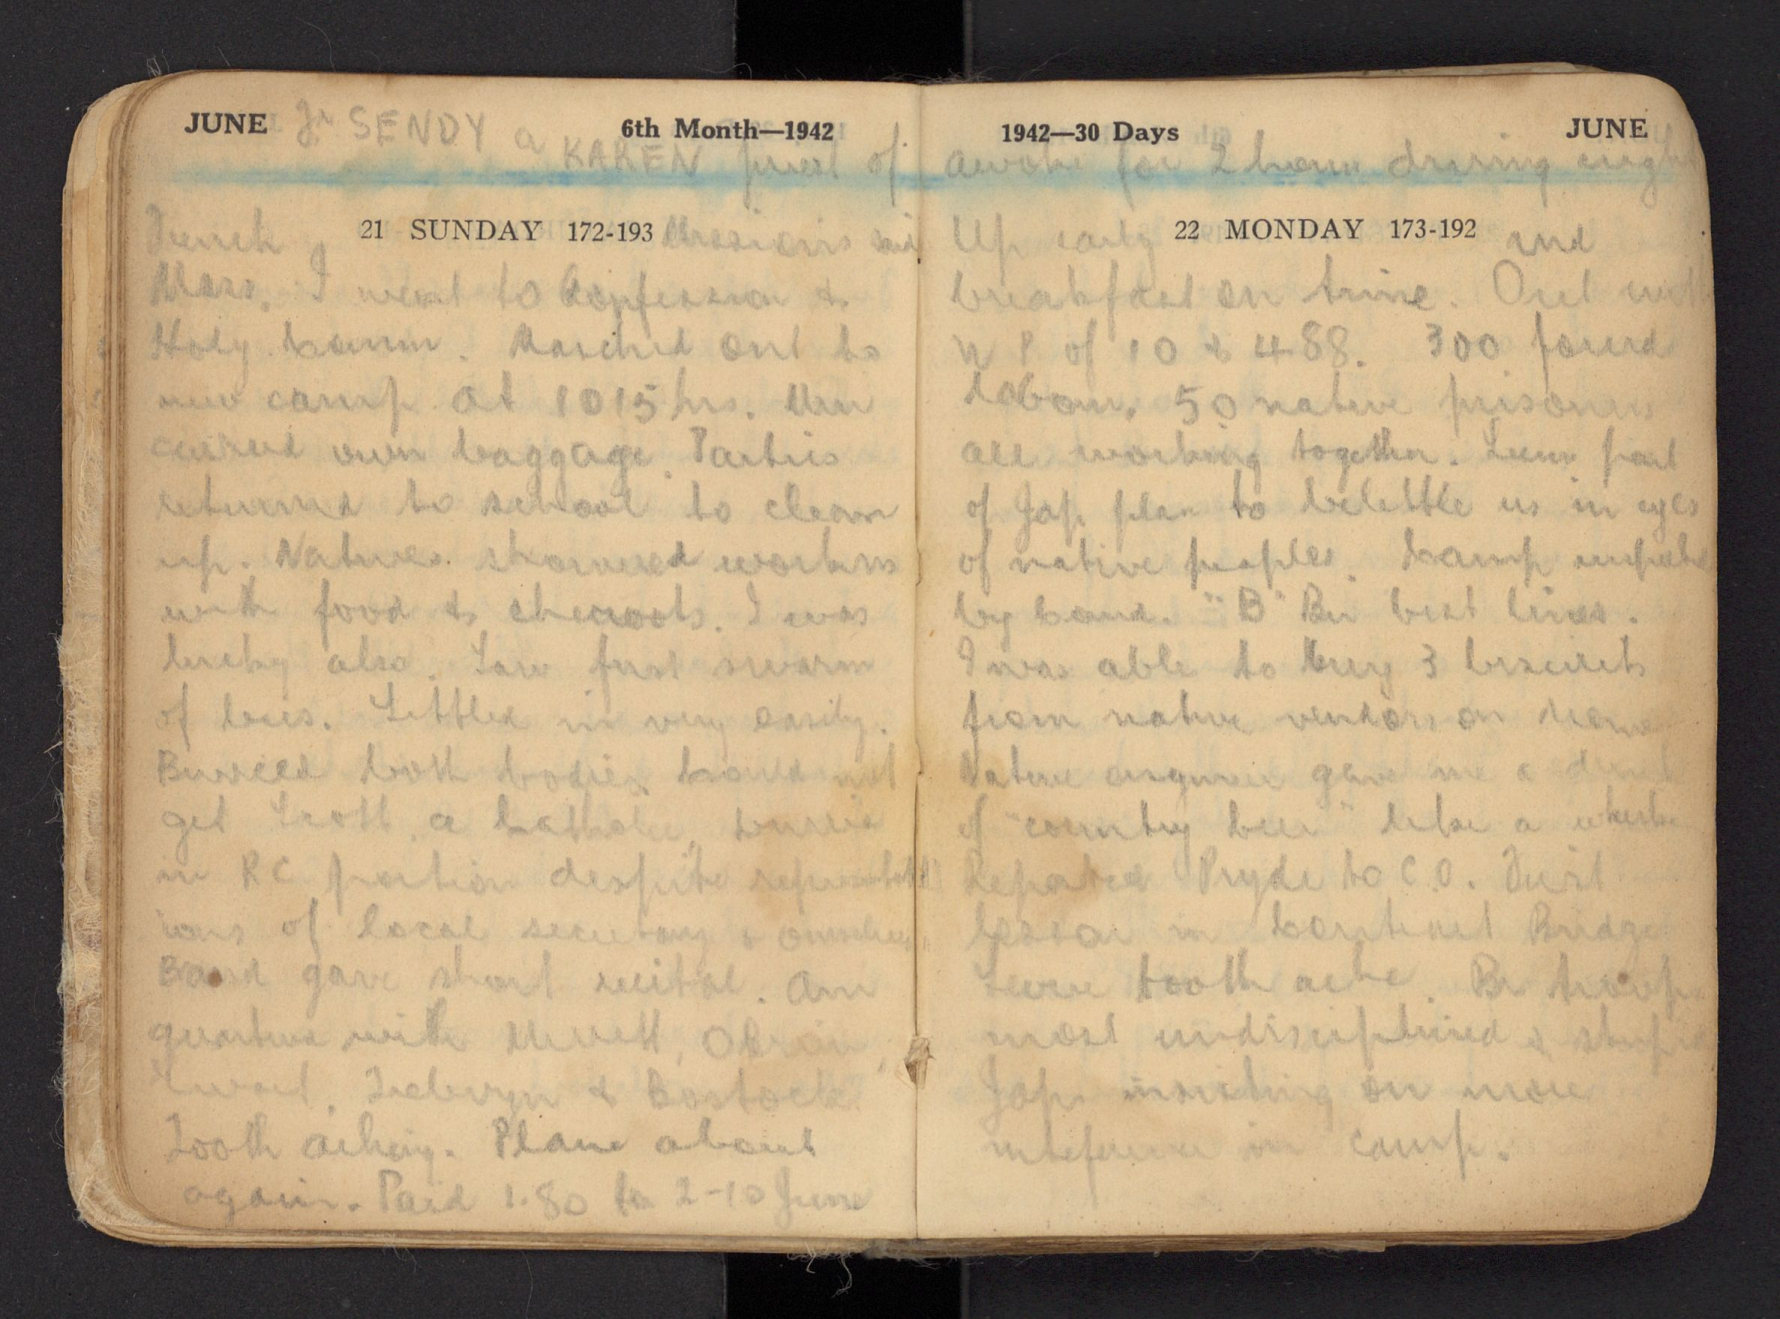 JUNE Fr SENDY a 6th Month—1942
KAREN priest of
21 SUNDAY 172-193
French Missions said
Mass. I went to Confession &
Holy Comm. Marched out to
new camp at 1015 hrs. Men
carried own baggage. Parties
returned to school to clean
up. Natives showered workers
with food & cheroots. I was
lucky also. Saw first swarm
of bees. Settled in very easily.
Burried both bodies. Could not
get Trott, a Catholic, burried
in RC portion despite representat
ions of local secretary & ourselves
Band gave short recital. Am
quartered with Merrett, OBrien,
& Bostock
Tooth aching. Plane about
again. Paid 1.80 to 2-10 June
1942—30 Days JUNE
awake for 2 hours during night
22 MONDAY 173-192
Up early and
breakfast on time. Out with
W P of 10 & 488. 300 forced
labour, 50 native prisoners
all working together. Seems part
of Jap plan to belittle us in eyes
of native peoples. Camp inspected
by Comd. "B" Bn best lines.
I was able to buy 3 biscuits
from native vendors on
Native engineer gave me a drink
of "country beer" like a
Reported Pryde to C.O. First
lesson in Contract Bridge
Severe tooth ache. Bn troops
most undisciplined & stupid
Japs insisting on more
inteference in camp.